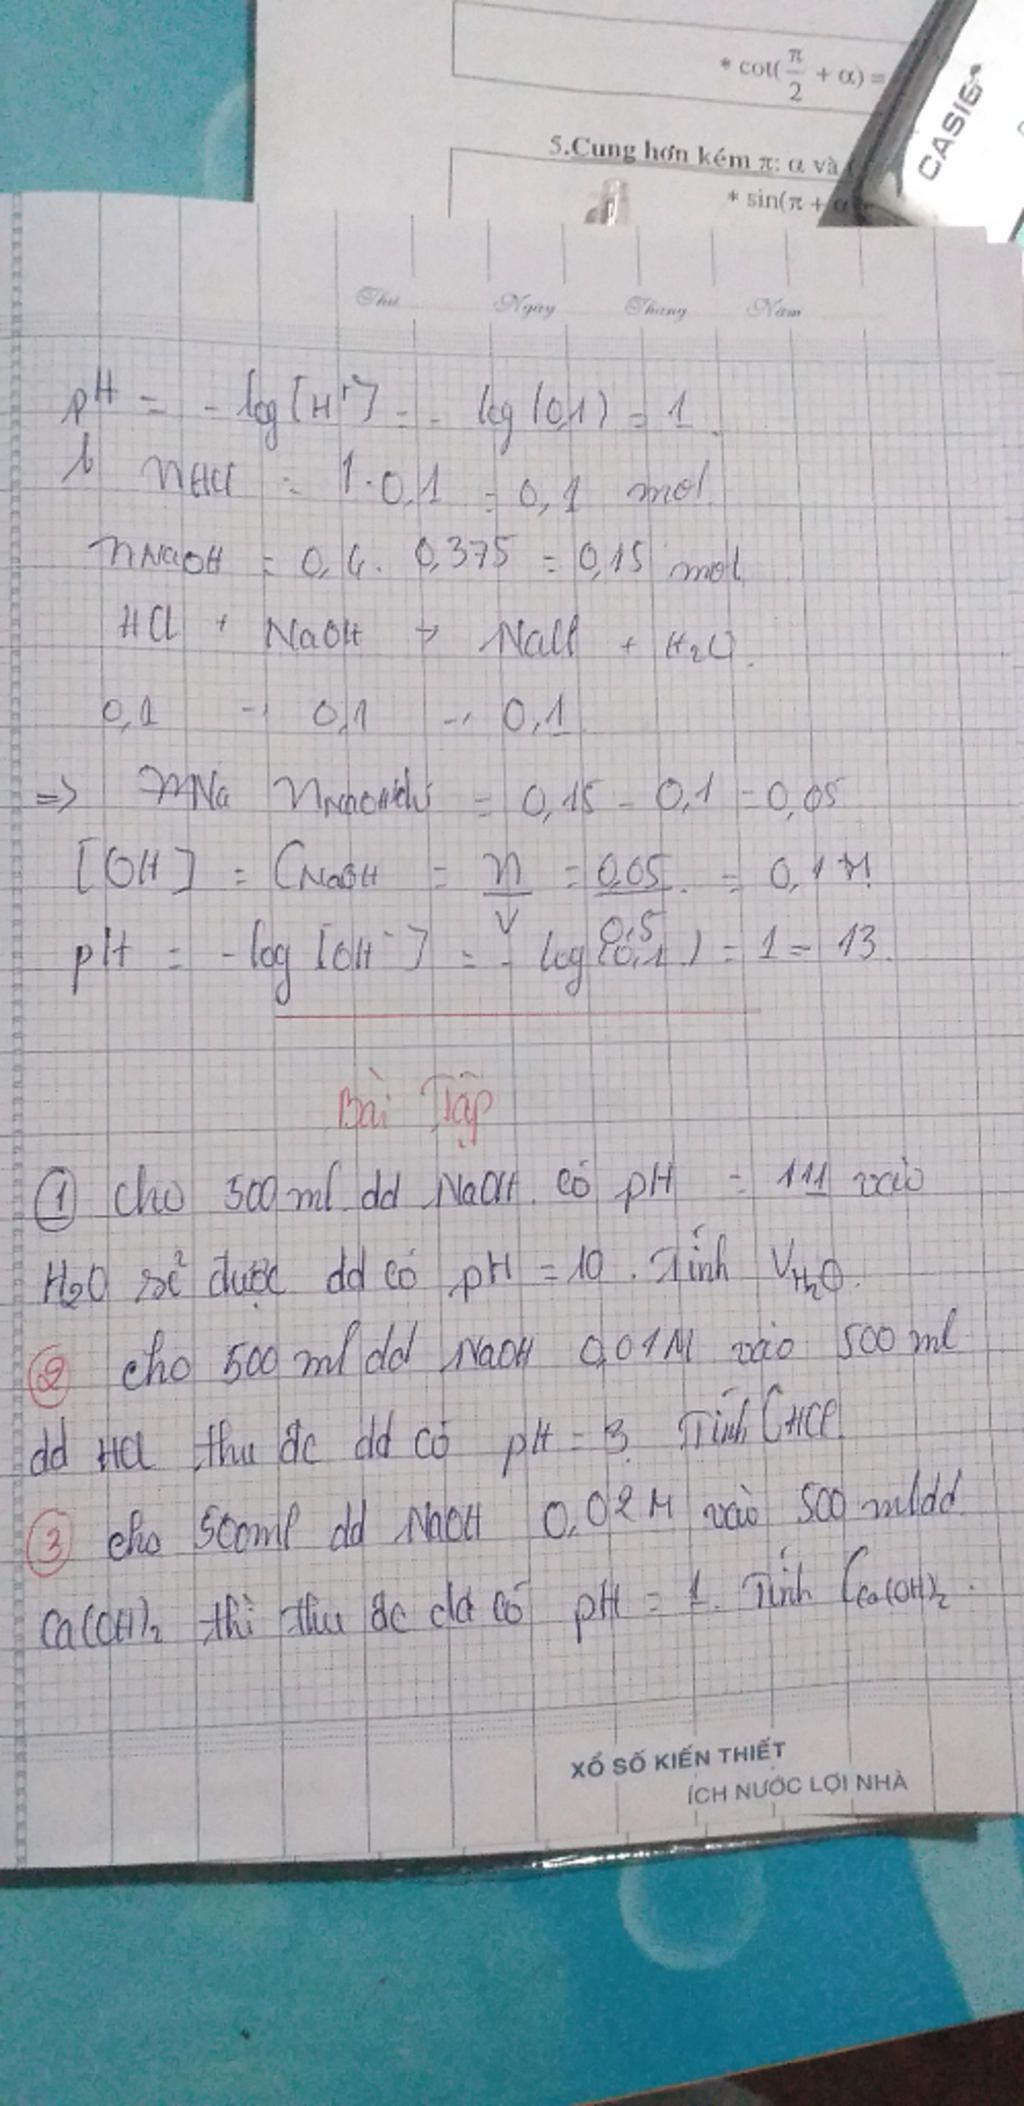 * cot(π/2 + α) =
CASIO
5.Cung hơn kém π: α và
* sin(π + α
Thứ Ngày Tháng Năm
pH = - log [H⁺] = - log (0,1) = 1.
b nHCl = 1.0,1 = 0,1 mol.
nNaOH = 0,4. 0,375 = 0,15 mol
HCl + NaOH → NaCl + H₂O.
0,1 → 0,1 → 0,1
=> nNaOH dư = 0,15 - 0,1 = 0,05
[OH] = CNaOH = n/V = 0,05/0,5 = 0,1 M
pH = - log [OH⁻] = - log (0,1) = 1 = 13.
Bài Tập
① cho 500 ml dd NaOH có pH = 11 vào
H₂O sẽ được dd có pH = 10. Tính VH₂O.
② cho 500 ml dd NaOH 0,01M vào 500 ml
dd HCl thu đc dd có pH = 3. Tính CHCl
③ cho 500ml dd NaOH 0,02M vào 500 ml dd
Ca(OH)₂ thì thu đc dd có pH = 1. Tính CCa(OH)₂.
XỔ SỐ KIẾN THIẾT
ÍCH NƯỚC LỢI NHÀ